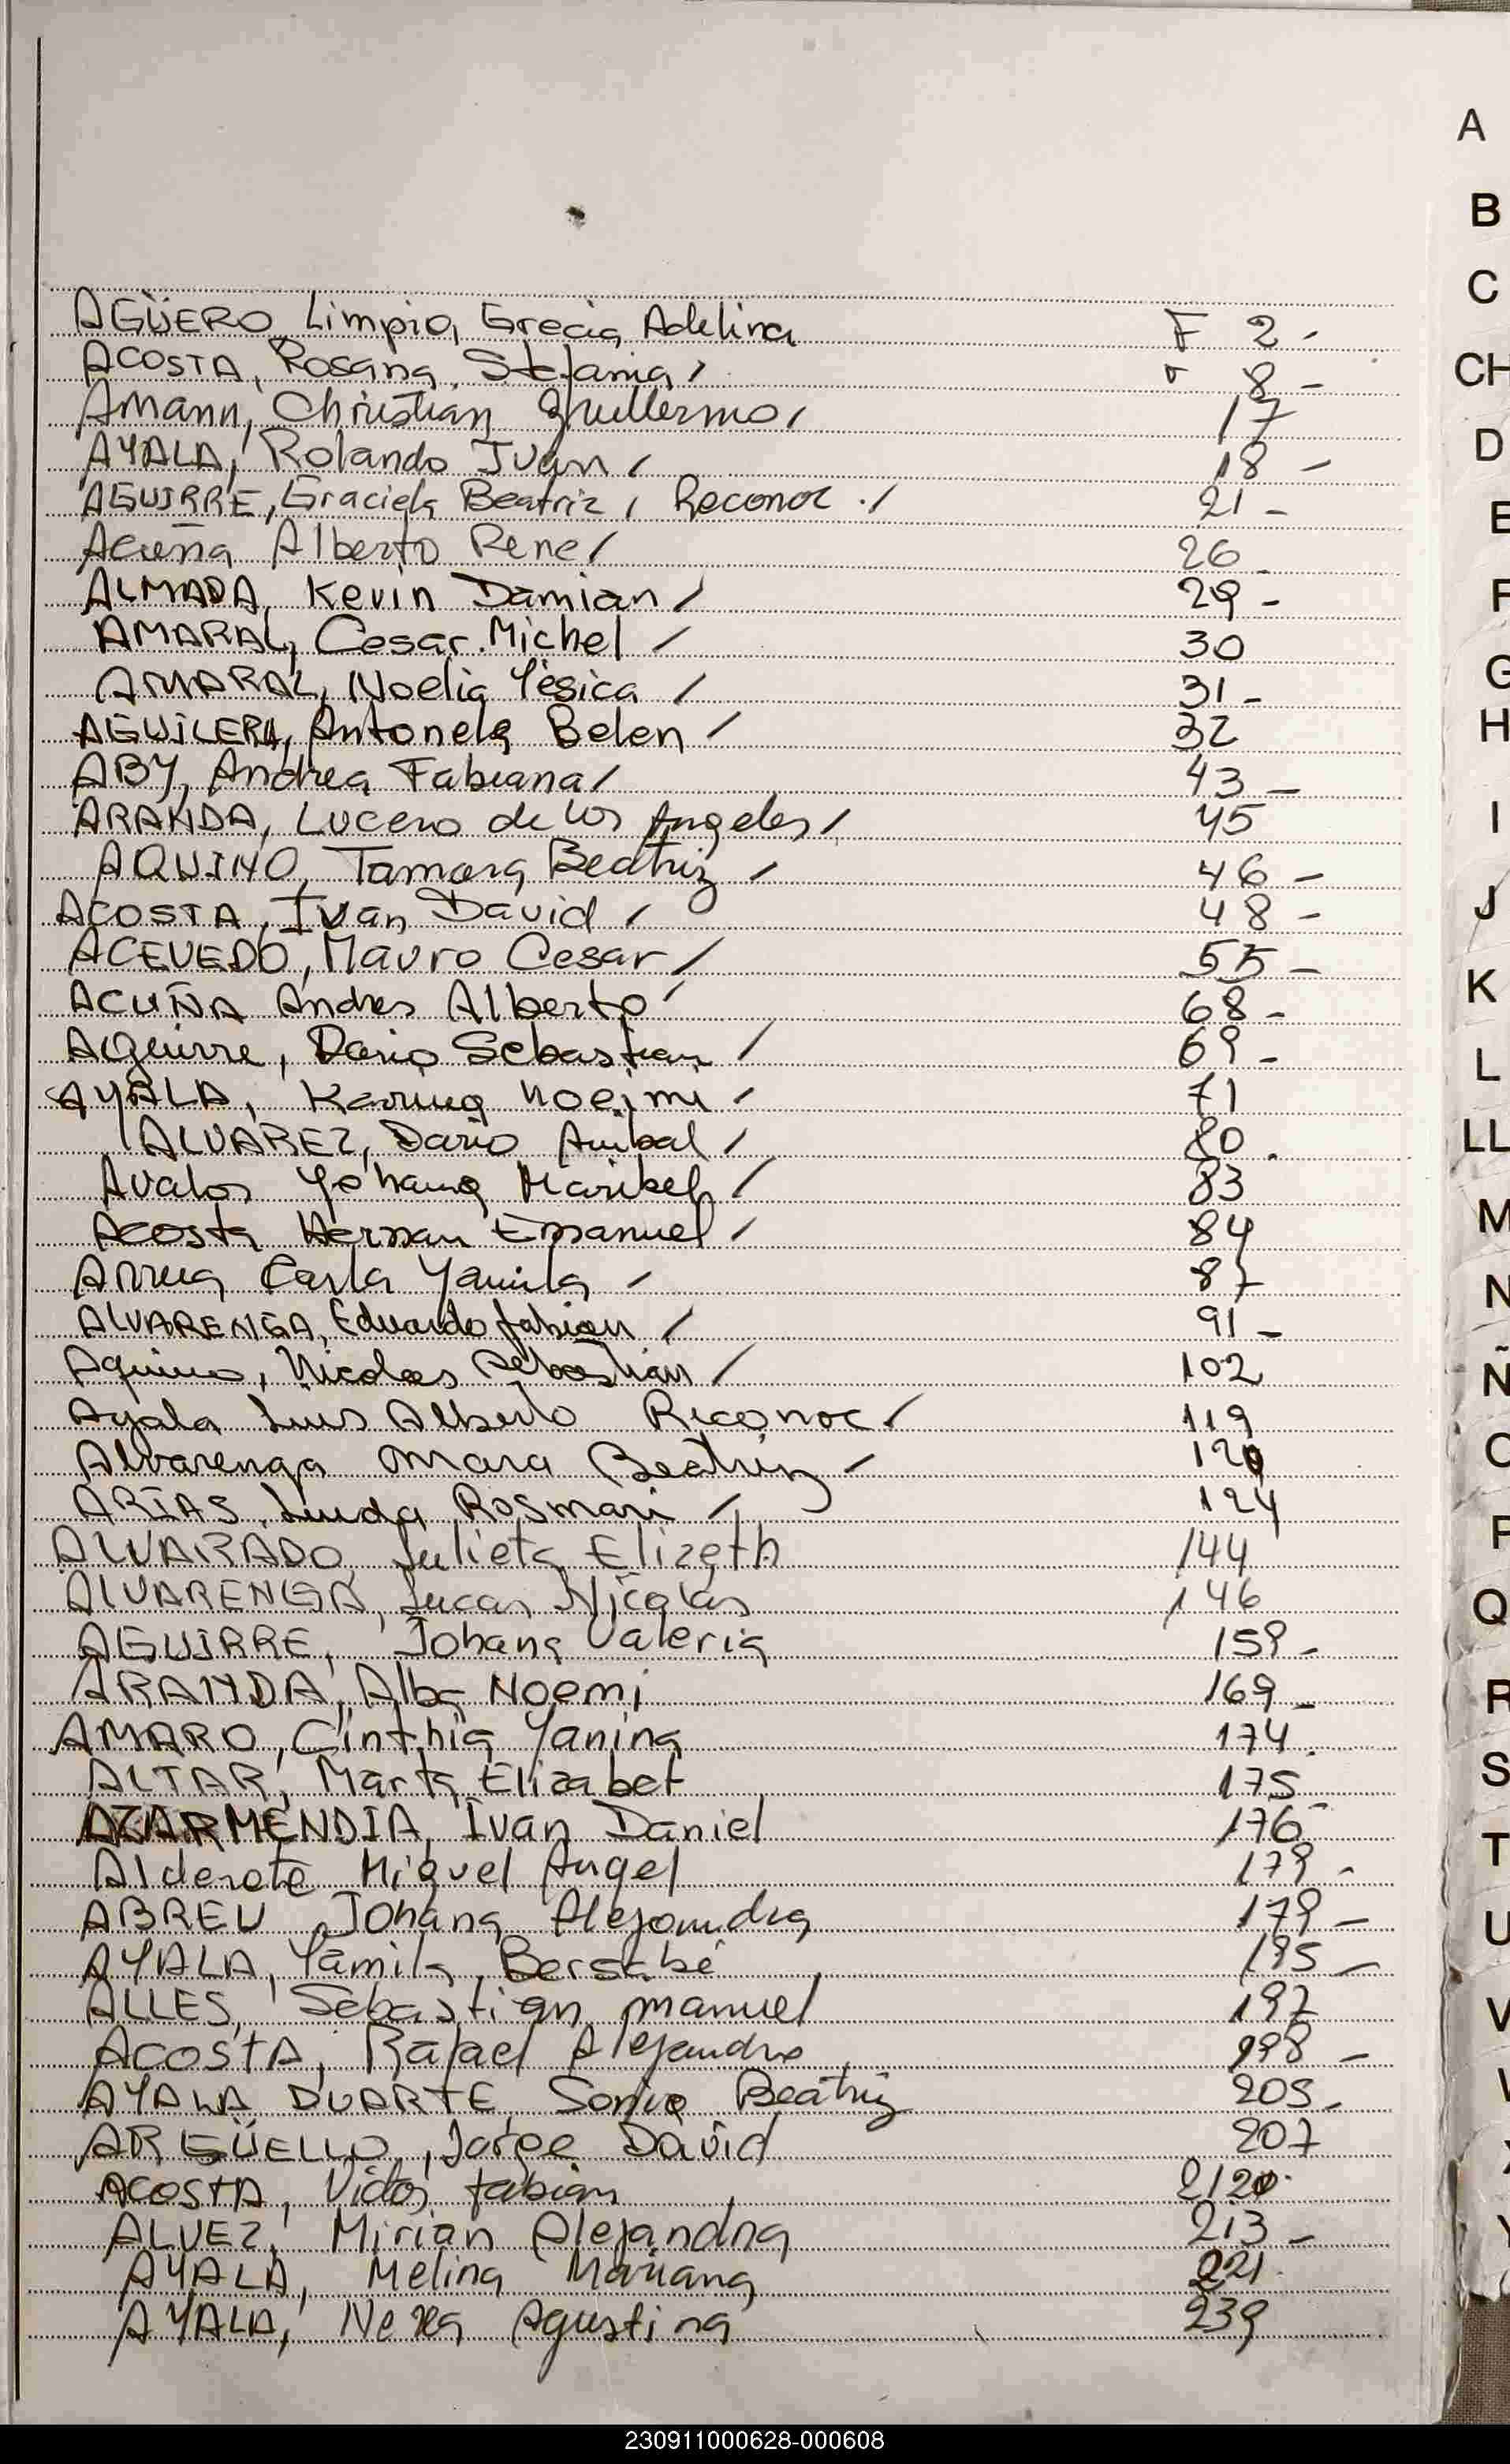 AGÜERO Limpio, Grecia Adelina F 2 -
ACOSTA, Rosana Stefania / 8 -
Amann, Christian Guillermo / 17
AYALA, Rolando Juan / 18 -
AGUIRRE, Graciela Beatriz, Reconoc. / 21 -
Acuña Alberto Rene / 26
ALMADA, Kevin Damian / 29 -
AMARAL, Cesar Michel / 30
AMARAL, Noelia Yesica / 31 -
AGUILERA, Antonela Belen / 32
ABY, Andrea Fabiana / 43 -
ARANDA, Lucero de los Angeles / 45
AQUINO, Tamara Beatriz / 46 -
ACOSTA, Ivan David / 48 -
ACEVEDO, Mauro Cesar / 55 -
ACUÑA Andres Alberto / 68 -
Aguirre, Dario Sebastian / 69 -
AYALA, Karina Noeimi / 71
ALVAREZ, Dario Anibal / 80
Avalos Yohana Maribel / 83
Acosta Hernan Emanuel / 84
Arrua Carla Yamila / 87
ALVARENGA, Eduardo fabian / 91 -
Aquino, Nicolas Sebastian / 102
Ayala Luis Alberto Reconoc / 119
Alvarenga Mara Beatriz / 120
ARIAS, Linda Rosmari / 124
ALVARADO, Julieta Elizeth 144
ALVARENGA, Lucas Nicolas 146
AGUIRRE, Johana Valeria 159 -
ARANDA, Alba Noemi 169 -
AMARO, Cinthia Yanina 174
ALTAR, Marta Elizabet 175
AZARMENDIA, Ivan Daniel 176 -
Alderete Miguel Angel 179 -
ABREU Johana Alejandra 179 -
AYALA, Yamila Bersabé 195 -
ALLES, Sebastian manuel 197
ACOSTA, Rafael Alejandro 198 -
AYALA DUARTE, Sonia Beatriz 205 -
ARGÜELLO, Jorge David 207
ACOSTA, Victor fabian 212
ALVEZ, Mirian Alejandra 213 -
AYALA, Melina Mariana 221
AYALA, Agustina 239
A
B
C
CH
D
E
F
G
H
I
J
K
L
LL
M
N
Ñ
O
P
Q
R
S
T
U
V
230911000628-000608